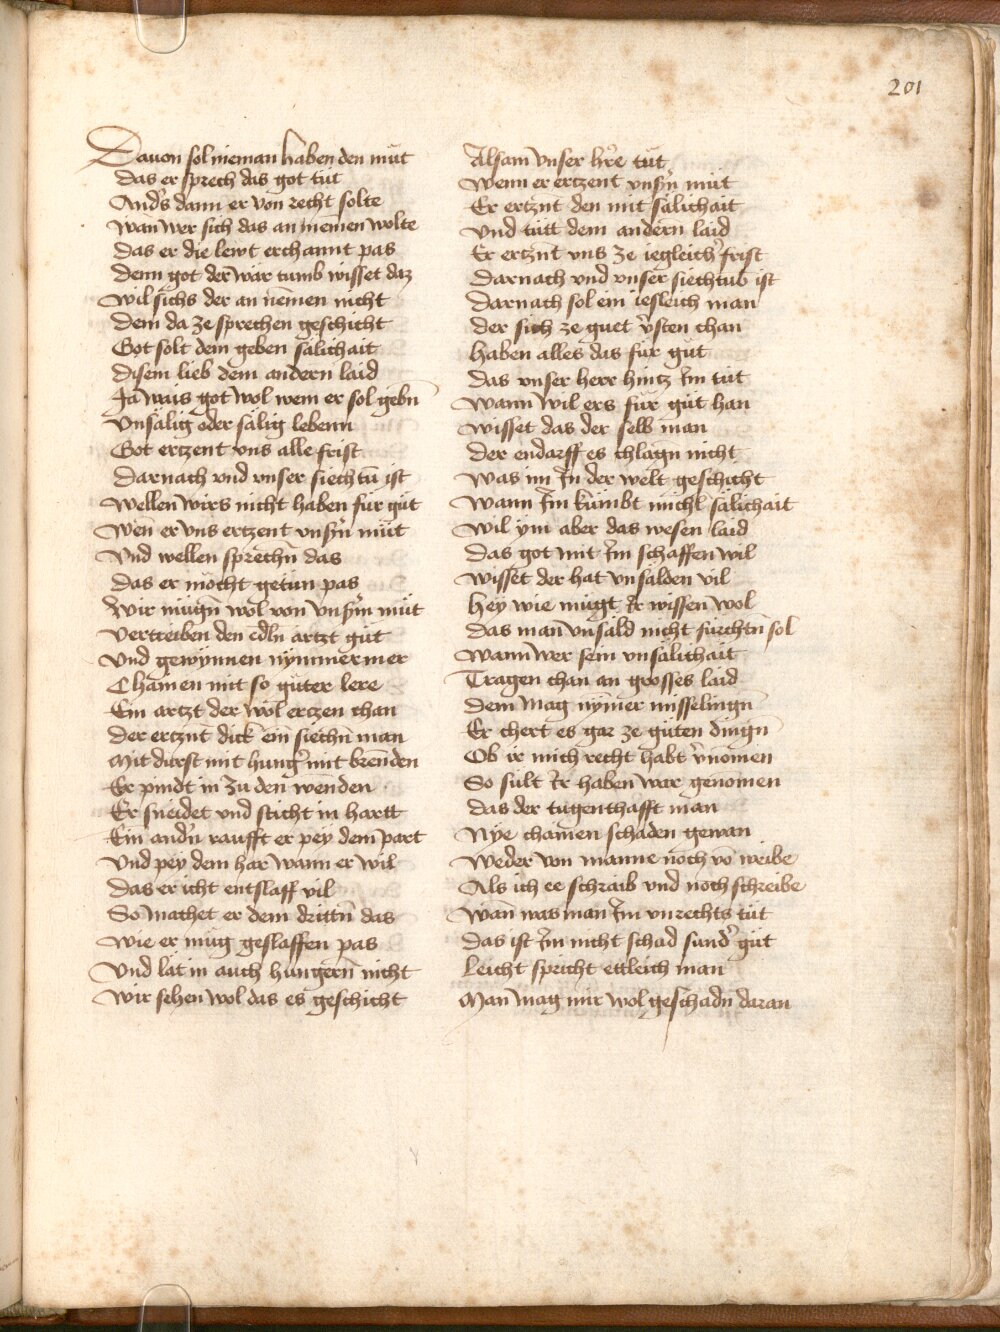 201
Dauon sol nieman haben den müt
Das er sprech das got tüt
And's dann er von recht solte
Wan wer sich das an nemen wolte
Das er die lewt erchannt pas
Denn got der wär tumb wisset daz
Wil sichs der an nēmen nicht
Dem da ze sprechen geschicht
Got solt dem geben sälichait
Disem lieb dem andern laid
Ja wais got wol wem er sol gebn̄
Vnsälig oder sälig lebenn
Got ertzent vns alle frist
Darnach vnd vnser siechtū ist
Wellen wirs nicht haben für güt
Wen er vns ertzent vnsn̄ müt
Vnd wellen sprechn̄ das
Das er möcht getün pas
Wir mügn̄ wol von vnsm̄ müt
Vertreiben den edln artzt güt
Vnd gewynnen nymmermer
Chämen mit so güter lere
Ein artzt der wol ertzen chan
Der ertznt dick ein siechn̄ man
Mit durst mit hung' mit brēnden
Er pindt in zu den wēnden
Er sneidet vnd sticht in hartt
Ein andn̄ raufft er pey dem part
Vnd pey dem har wann er wil
Das er icht entslaff vil
So machet er dem drittn̄ das
Wie er müg geslaffen pas
Vnd lät in auch hungern̄ nicht
Wir sehen wol das es geschicht
Alsam vnser h're tüt
Wenn er ertzent vnsn̄ müt
Er ertznt den mit sälichait
Vnd tütt dem andern laid
Er ertznt vns ze iegleich' frist
Darnach vnd vnser siechtub ist
Darnach sol ein iesleich man
Der sich ze guet v'sten chan
Haben alles das für güt
Das vnser herr hintz Im tüt
Wann wil ers für güt han
Wisset das der selb man
Der endarff es chlagn̄ nicht
Was im In der welt geschicht
Wann Im kümbt michl sälichait
Wil ym aber das wesen laid
Das got mit Im schaffen wil
Wisset der hat vnsälden vil
Hey wie mügt Ir wissen wol
Das man vnsäld nicht fürchtn̄ sol
Wann wer sein vnsälichait
Tragen chan an grosses laid
Dem mag nymer misselingn̄
Er chert es gar ze güten dingn̄
Ob ir mich recht habt v'nomen
So sült Ir haben war genomen
Das der tugenthafft man
Nye chainen schaden gewan
Weder von manne noch vō weibe
Als ich ee schraib vnd noch schreibe
Wan̄ was man Im vnrechts tüt
Das ist Im nicht schad sund' güt
Leicht spricht ettleich man
Man mag mir wol geschadn̄ daran